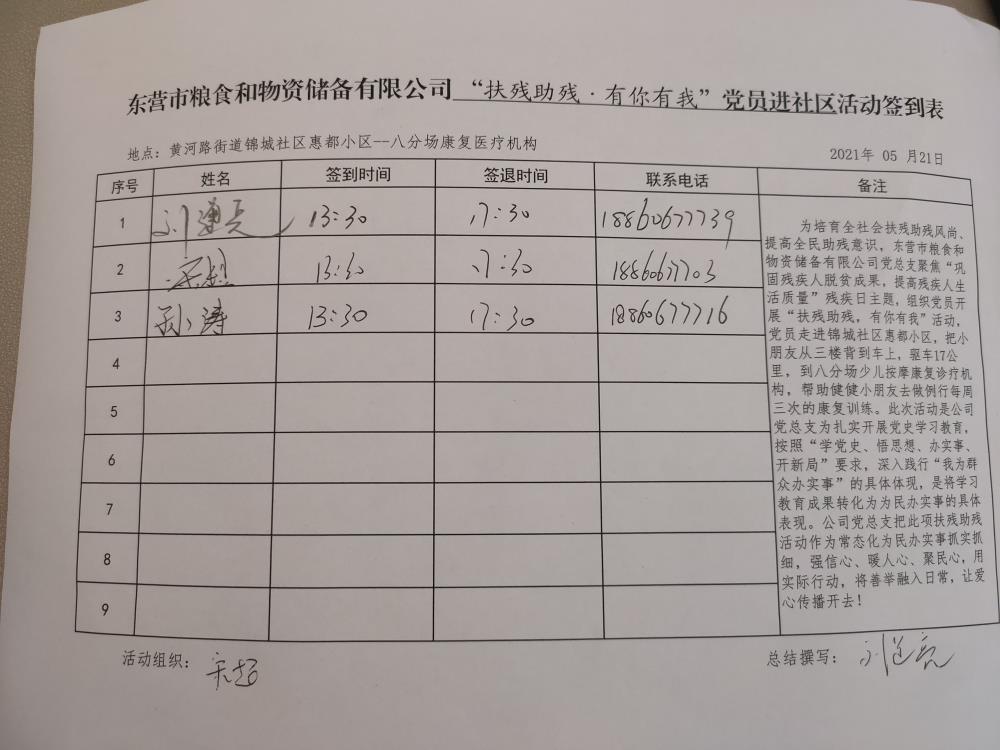 东营市粮食和物资储备有限公司“扶残助残·有你有我”党员进社区活动签到表
地点：黄河路街道锦城社区惠都小区--八分场康复医疗机构
2021年 05 月21日
序号 姓名 签到时间 签退时间 联系电话 备注
1 13:30 17:30 18860677739
2 宋超 13:30 17:30 18860677703
3 孙涛 13:30 17:30 18860677716
4
5
6
7
8
9
为培育全社会扶残助残风尚、
提高全民助残意识，东营市粮食和
物资储备有限公司党总支聚焦“巩
固残疾人脱贫成果，提高残疾人生
活质量”残疾日主题，组织党员开
展“扶残助残，有你有我”活动，
党员走进锦城社区惠都小区，把小
朋友从三楼背到车上，驱车17公
里，到八分场少儿按摩康复诊疗机
构，帮助健健小朋友去做例行每周
三次的康复训练。此次活动是公司
党总支为扎实开展党史学习教育，
按照“学党史、悟思想、办实事、
开新局”要求，深入践行“我为群
众办实事”的具体体现，是将学习
教育成果转化为为民办实事的具体
表现。公司党总支把此项扶残助残
活动作为常态化为民办实事抓实抓
细，强信心、暖人心、聚民心，用
实际行动，将善举融入日常，让爱
心传播开去！
活动组织：宋超
总结撰写：